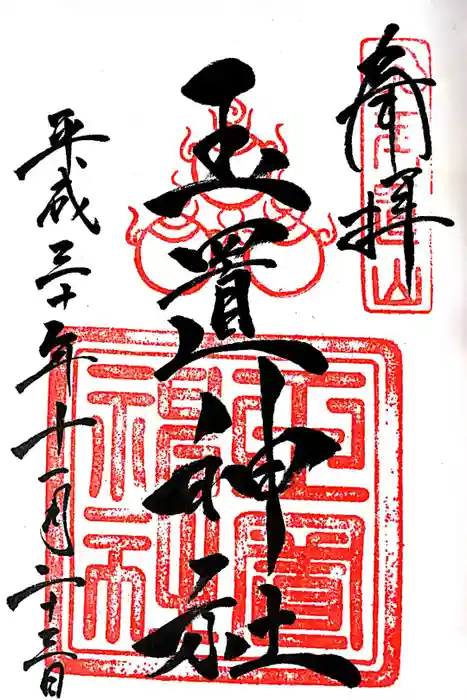 奉拝
玉置神社
平成三十年十一月二十三日
玉置神社